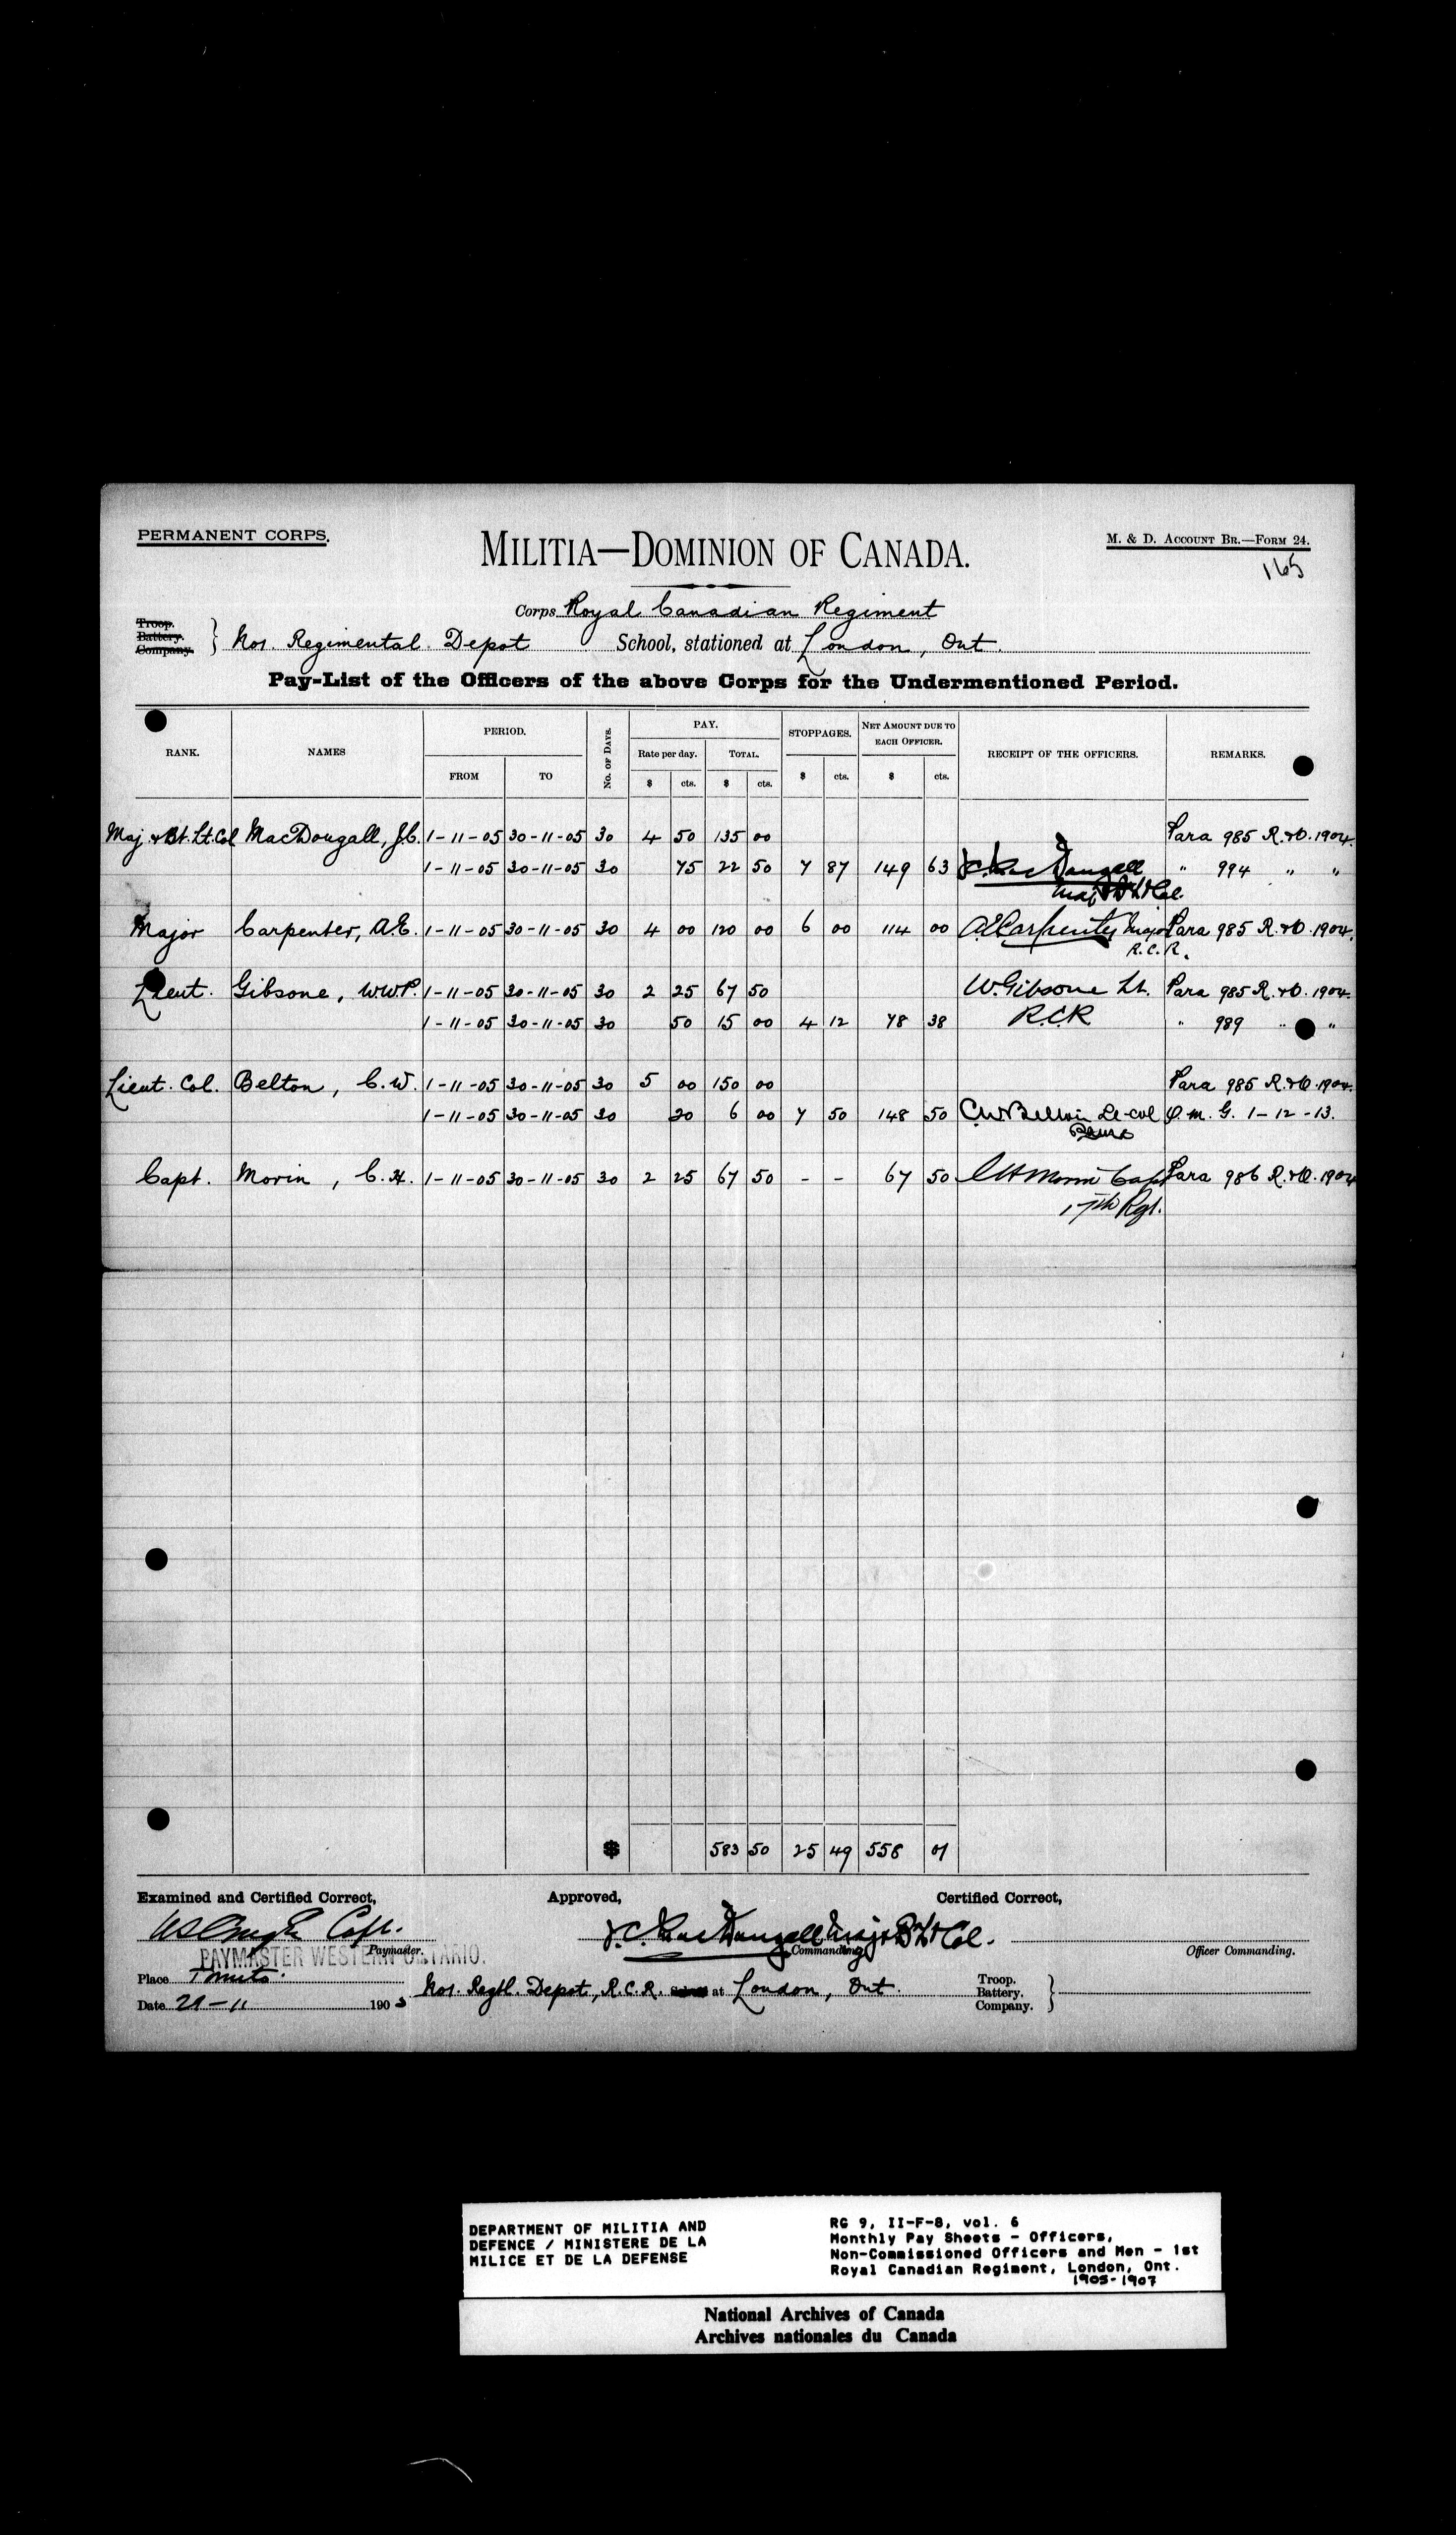 PERMANENT CORPS.
MILITIA—DOMINION OF CANADA.
M. & D. ACCOUNT BR.—FORM 24.
165
Corps Royal Canadian Regiment
Troop.
Battery.
Company.
No1. Regimental Depot School, stationed at London, Ont.
Pay-List of the Officers of the above Corps for the Undermentioned Period.
RANK. NAMES PERIOD. FROM TO No. of Days. PAY. Rate per day. $ cts. TOTAL. $ cts. STOPPAGES. $ cts. NET AMOUNT DUE TO EACH OFFICER. $ cts. RECEIPT OF THE OFFICERS. REMARKS.
Maj. & Bt. Lt. Col MacDougall, J.C. 1-11-05 30-11-05 30 4 50 135 00 Para 985 R.&O. 1904.
1-11-05 30-11-05 30 75 22 50 7 87 149 63 J.C. MacDougall " 994 " "
Maj & Bt Lt Col.
Major Carpenter, A.E. 1-11-05 30-11-05 30 4 00 120 00 6 00 114 00 A.E. Carpenter Major Para 985 R.&O. 1904.
R.C.R.
Lieut. Gibsone, W.W.P. 1-11-05 30-11-05 30 2 25 67 50 W. Gibsone Lt. Para 985 R.&O. 1904.
1-11-05 30-11-05 30 50 15 00 4 12 78 38 R.C.R " 989 " "
Lieut. Col. Belton, C.W. 1-11-05 30-11-05 30 5 00 150 00 Para 985 R.&O. 1904.
1-11-05 30-11-05 30 20 6 00 7 50 148 50 C.W. Belton Lt-Col Q.M.G. 1-12-13.
Capt. Morin, C.H. 1-11-05 30-11-05 30 2 25 67 50 - - 67 50 C H Morin Capt Para 986 R.&O. 1904
17th Rgt.
$ 583 50 25 49 558 01
Examined and Certified Correct, Approved, Certified Correct,
Capt. J.C. MacDougall Major Bt Lt Col.
Paymaster. Commanding Officer Commanding.
PAYMASTER WESTERN ONTARIO.
Place Toronto.
No1. Regtl. Depot, R.C.R. School at London, Ont.
Troop.
Battery.
Company.
Date 21-11 1905
DEPARTMENT OF MILITIA AND
DEFENCE / MINISTERE DE LA
MILICE ET DE LA DEFENSE
RG 9, II-F-8, vol. 6
Monthly Pay Sheets - Officers,
Non-Commissioned Officers and Men - 1st
Royal Canadian Regiment, London, Ont.
1905-1907
National Archives of Canada
Archives nationales du Canada